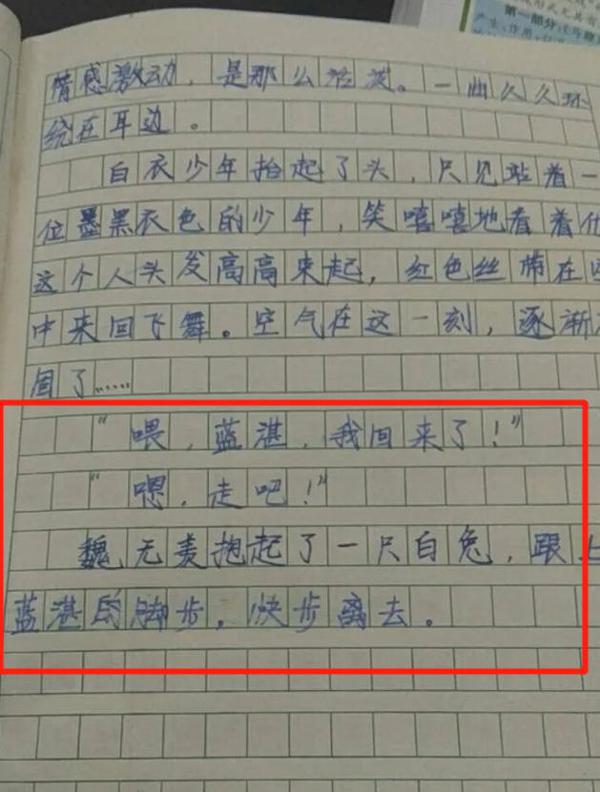 第一部分
产生、作用、
情感激动，是那么活泼。一曲久久环
绕在耳边。
白衣少年抬起了头，只见站着一
位墨黑衣色的少年，笑嘻嘻地看着他
这个人头发高高束起，红色丝带在
中来回飞舞。空气在这一刻，逐渐
固了……
“喂，蓝湛，我回来了！”
“嗯，走吧！”
魏无羡抱起了一只白兔，跟上
蓝湛的脚步，快步离去。